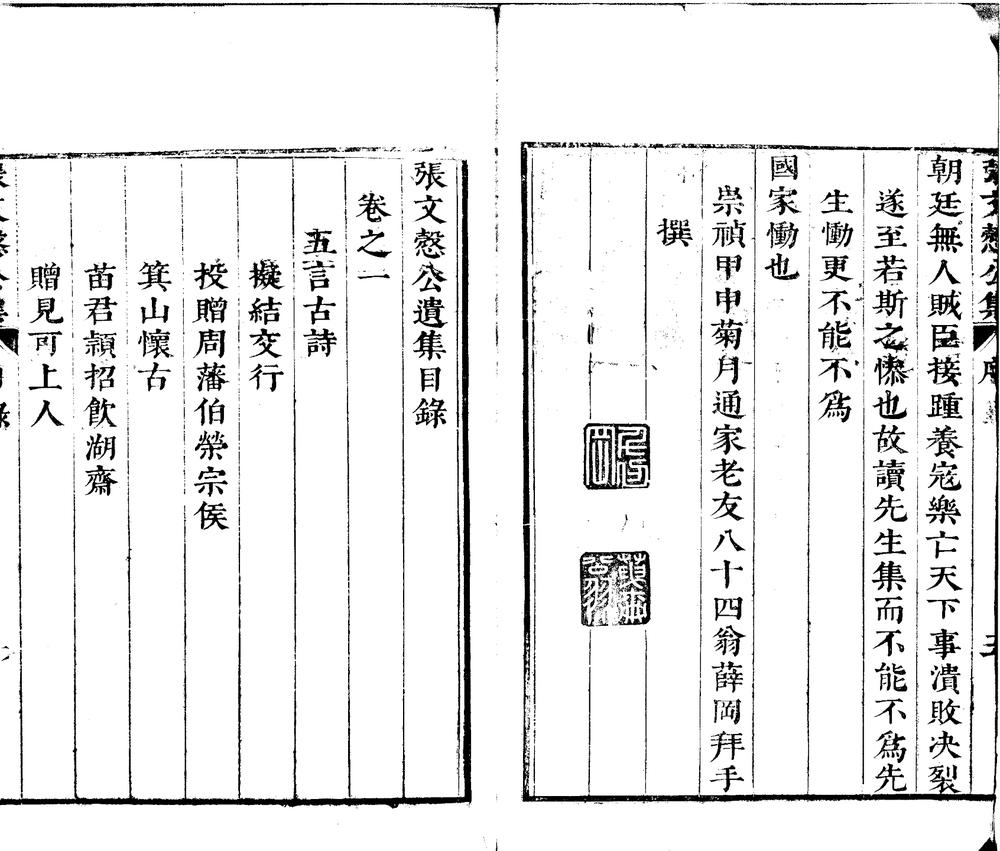 張文慤公集 序 五
朝廷無人賊臣接踵養寇樂亡天下事潰敗决裂
遂至若斯之慘也故讀先生集而不能不爲先
生慟更不能不爲
國家慟也
崇禎甲申菊月通家老友八十四翁薛岡拜手
撰
張文慤公遺集目錄
卷之一
五言古詩
擬結交行
投贈周藩伯榮宗侯
箕山懷古
苗君頴招飲湖齋
贈見可上人
張文慤公集 目錄